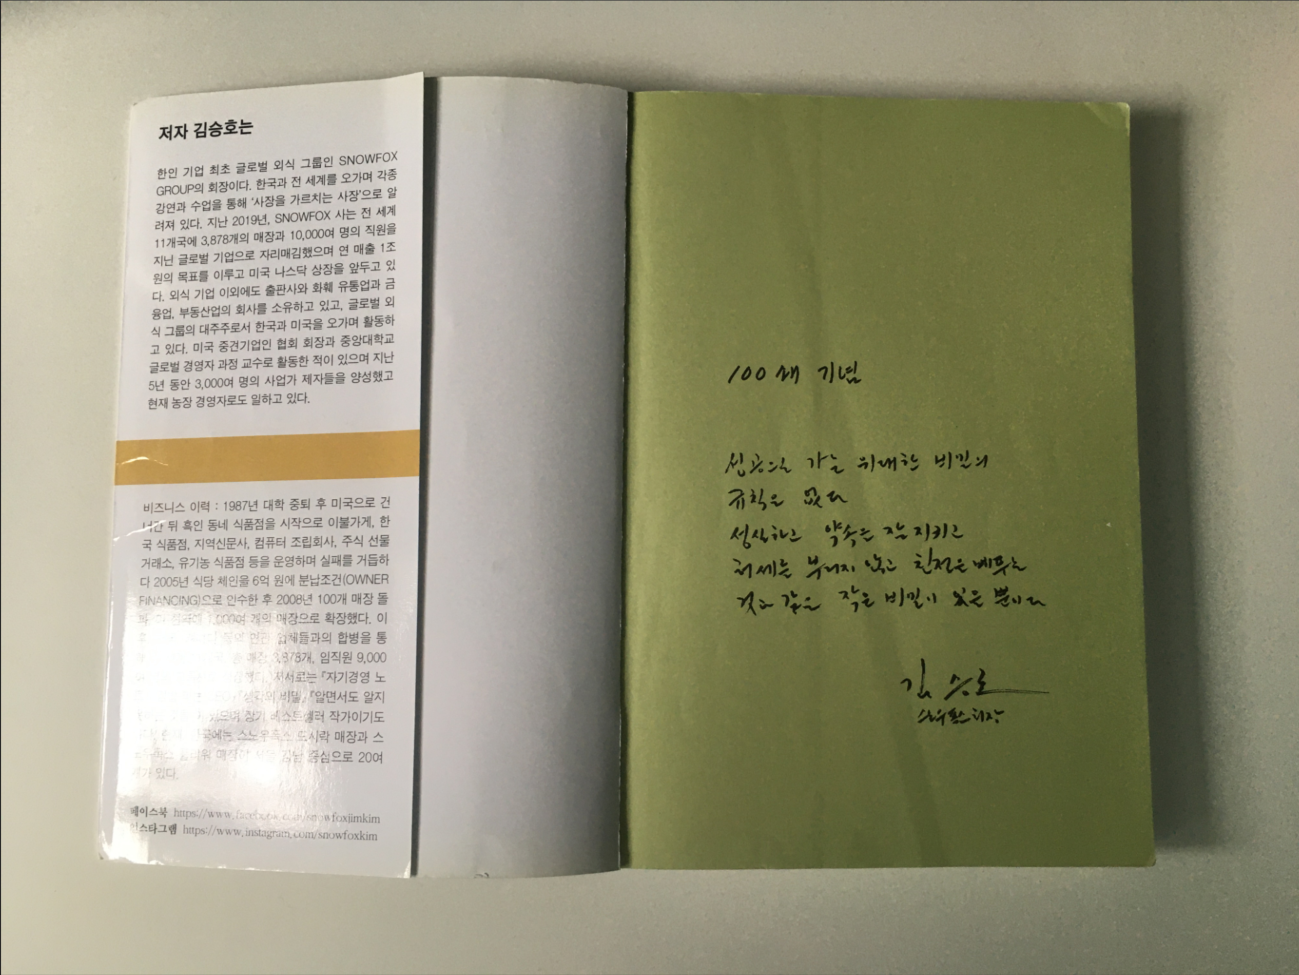 저자 김승호는
한인 기업 최초 글로벌 외식 그룹인 SNOWFOX
GROUP의 회장이다. 한국과 전 세계를 오가며 각종
강연과 수업을 통해 '사장을 가르치는 사장'으로 알
려져 있다. 지난 2019년, SNOWFOX 사는 전 세계
11개국에 3,878개의 매장과 10,000여 명의 직원을
지닌 글로벌 기업으로 자리매김했으며 연 매출 1조
원의 목표를 이루고 미국 나스닥 상장을 앞두고 있
다. 외식 기업 이외에도 출판사와 화훼 유통업과 금
융업, 부동산업의 회사를 소유하고 있고, 글로벌 외
식 그룹의 대주주로서 한국과 미국을 오가며 활동하
고 있다. 미국 중견기업인 협회 회장과 중앙대학교
글로벌 경영자 과정 교수로 활동한 적이 있으며 지난
5년 동안 3,000여 명의 사업가 제자들을 양성했고
현재 농장 경영자로도 일하고 있다.
비즈니스 이력 : 1987년 대학 중퇴 후 미국으로 건
너간 뒤 흑인 동네 식품점을 시작으로 이불가게, 한
국 식품점, 지역신문사, 컴퓨터 조립회사, 주식 선물
거래소, 유기농 식품점 등을 운영하며 실패를 거듭하
다 2005년 식당 체인을 6억 원에 분납조건(OWNER
FINANCING)으로 인수한 후 2008년 100개 매장 돌
1,000여 개의 매장으로 확장했다. 이
업체들과의 합병을 통
매장 3,878개, 임직원 9,000
저서로는 『자기경영 노
『생각의 비밀』, 『알면서도 알지
있으며 장기 베스트셀러 작가이기도
스노우폭스 도시락 매장과 스
매장이 강남 중심으로 20여
개가 있다.
페이스북 https://www.facebook.com/snowfoxjimkim
인스타그램 https://www.instagram.com/snowfoxkim
100쇄 기념
성공으로 가는 위대한 비밀의
규칙은 없다
성실하고 약속은 잘 지키고
허세는 부리지 않고 친절은 베푸는
것과 같은 작은 비밀이 있을 뿐이다
김승호
스노우폭스 회장